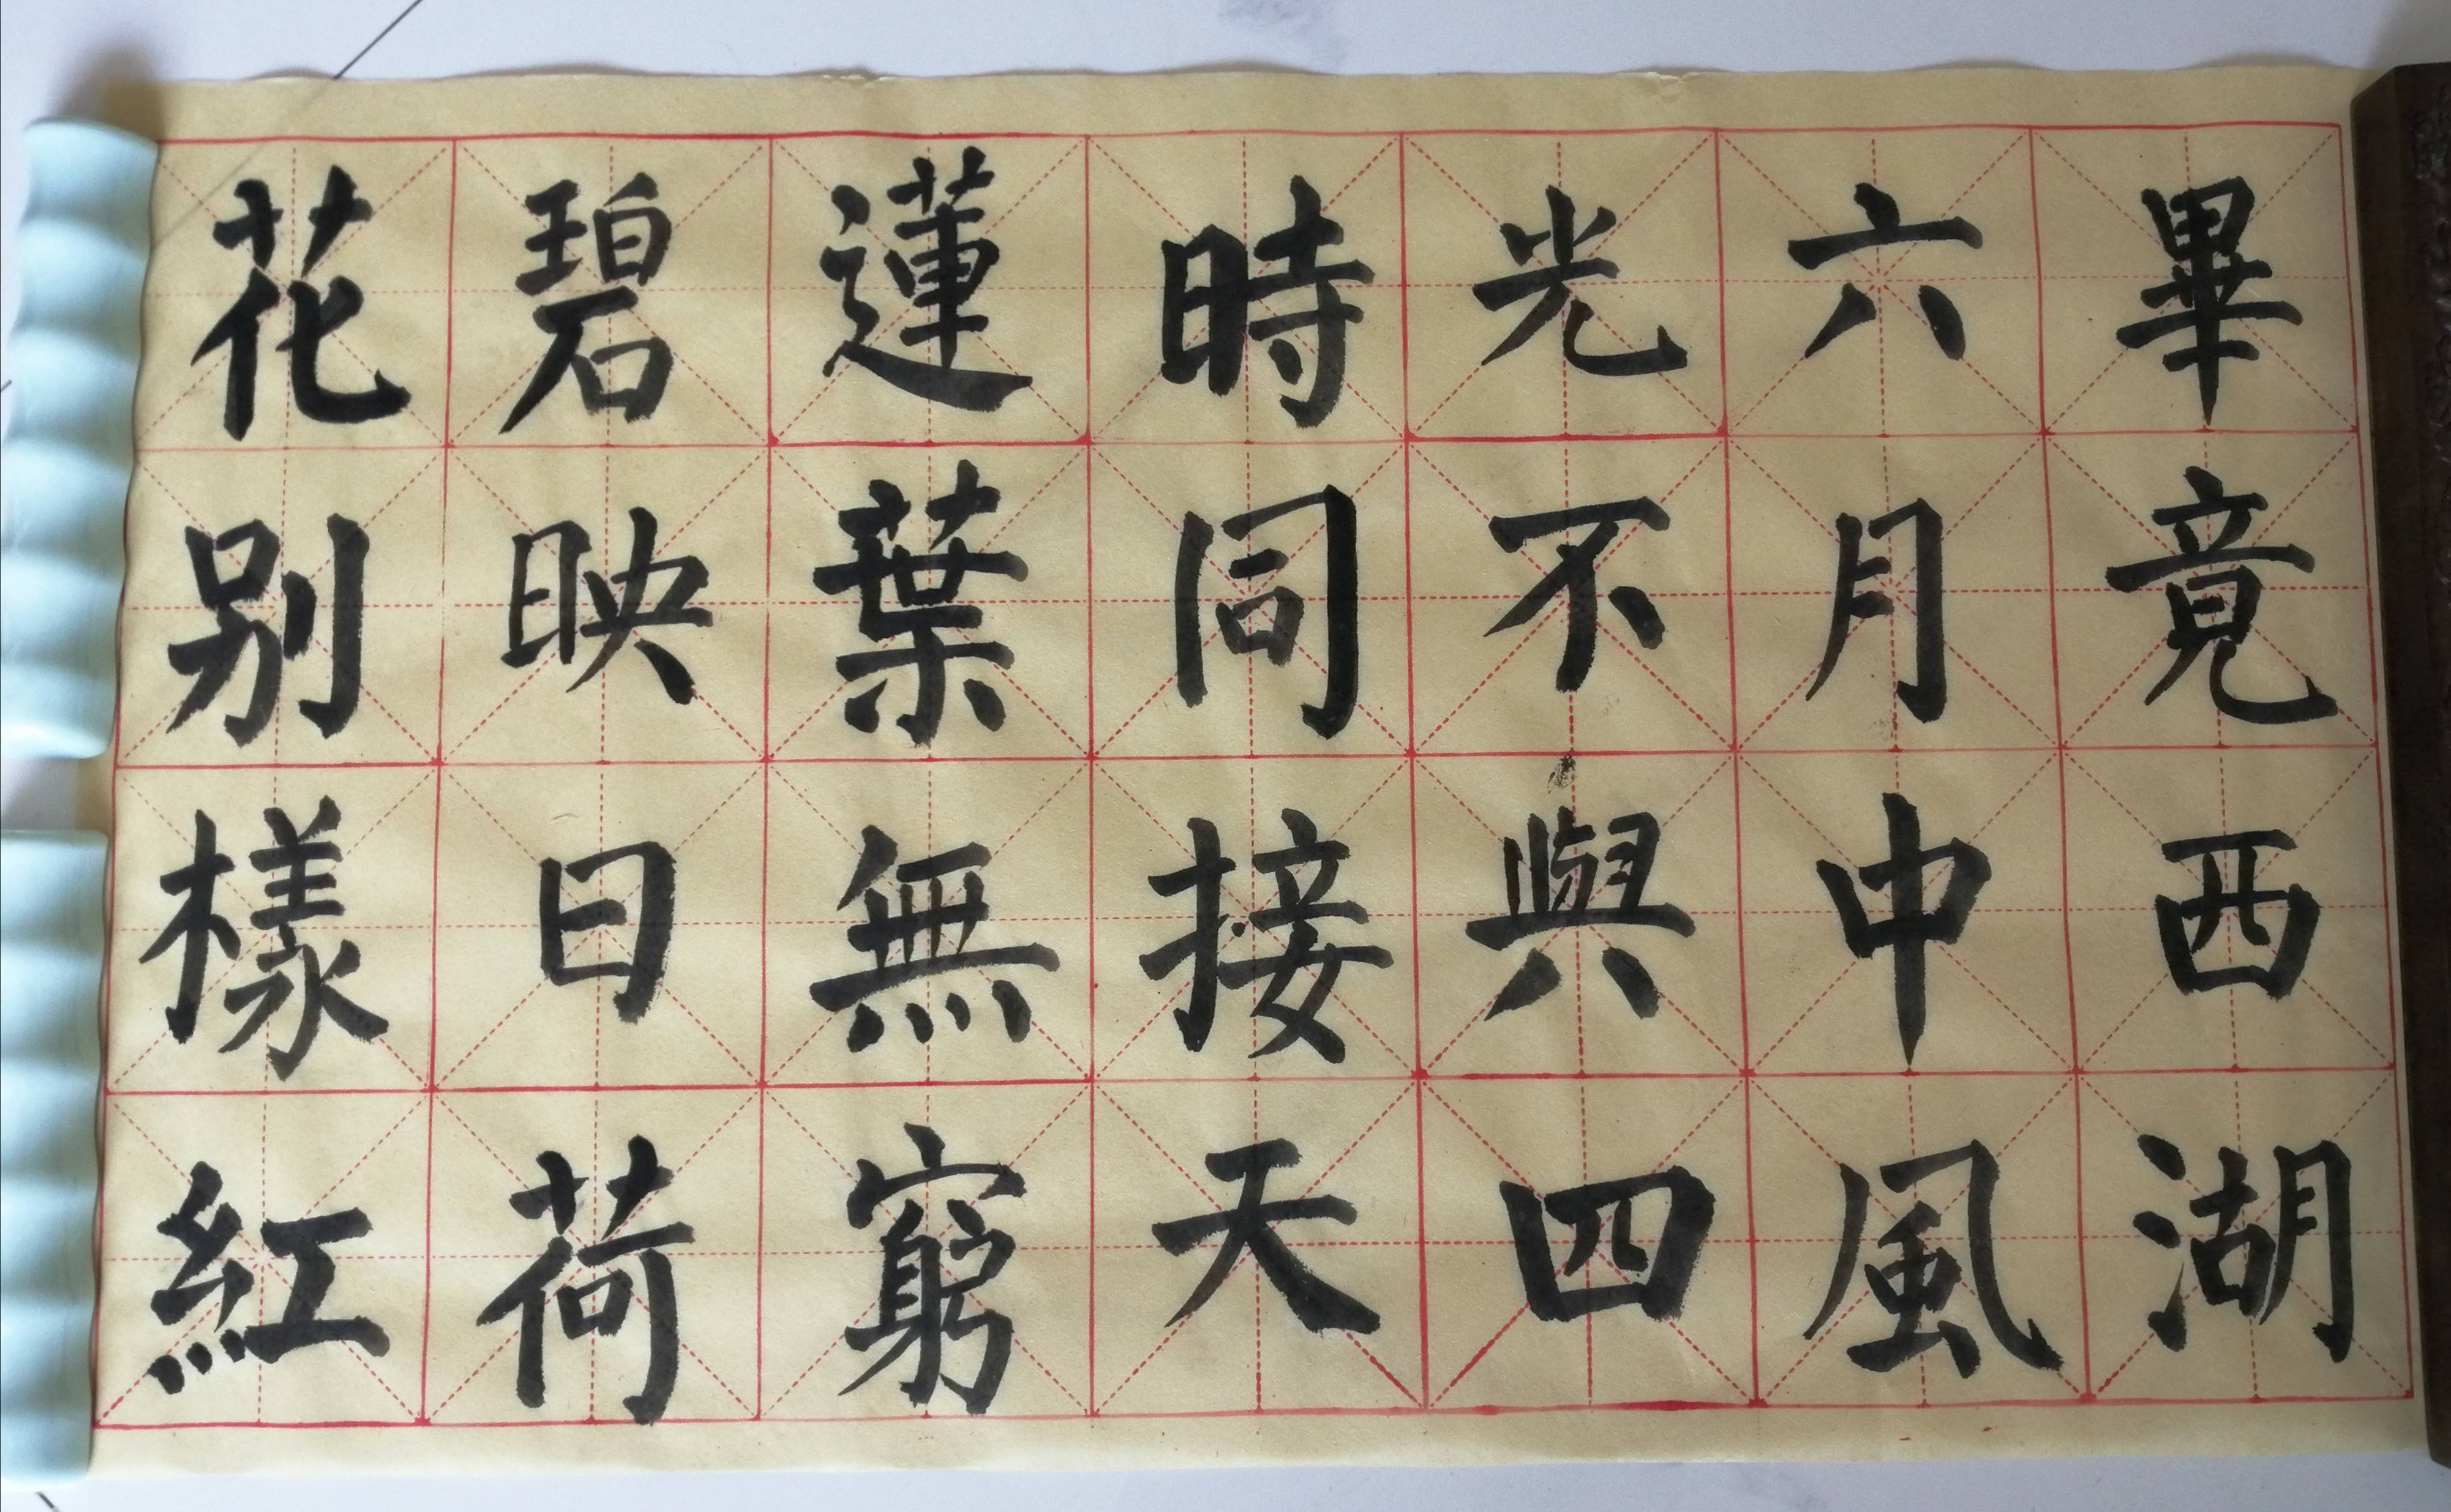 畢竟西湖
六月中風
光不與四
時同接天
蓮葉無窮
碧映日荷
花别樣紅